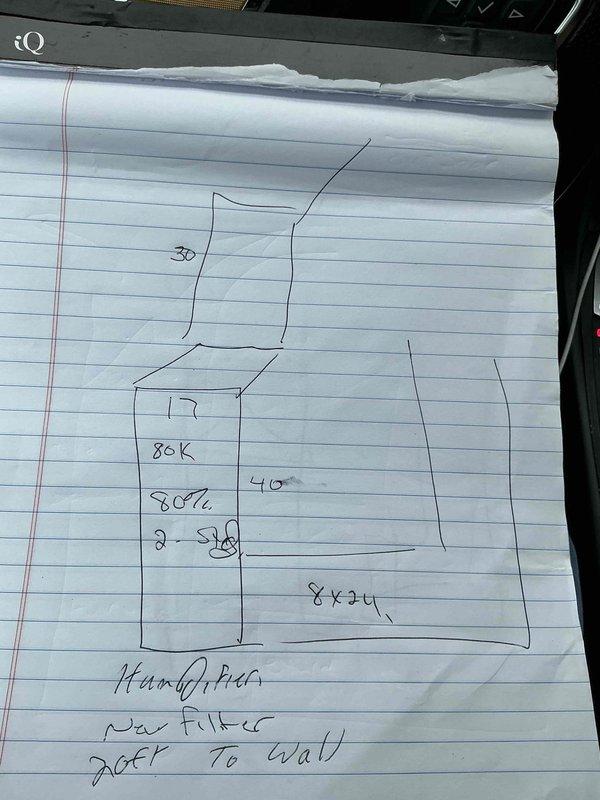 iQ
30
17
80K
80%
40
8x24
Humidifier
New Filter
20ft To Wall